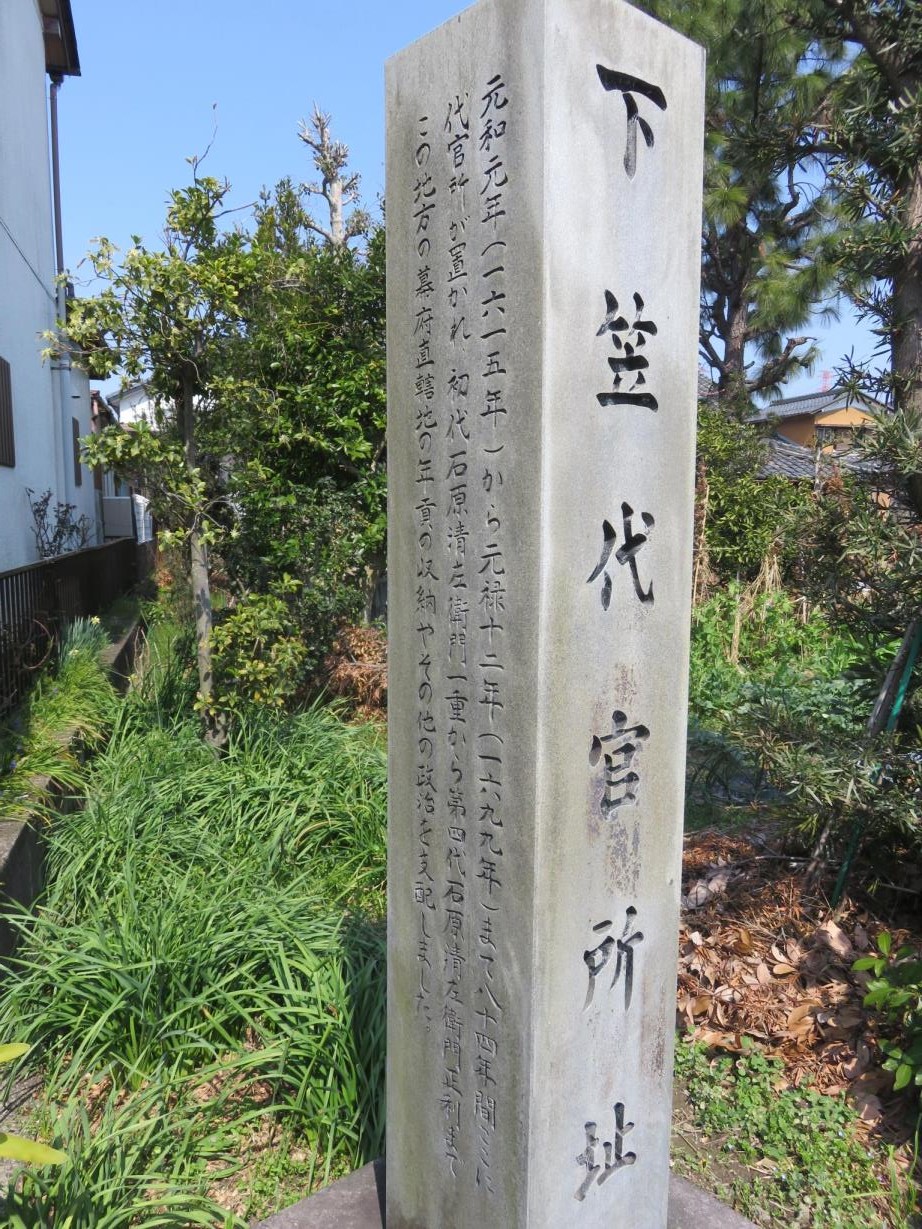 下笠代官所址
元和元年(一六一五年)から元禄十二年(一六九九年)まで八十四年間ここに
代官所が置かれ、初代石原清左衛門一重から第四代石原清左衛門正利まで
この地方の幕府直轄地の年貢の収納やその他の政治を支配しました。